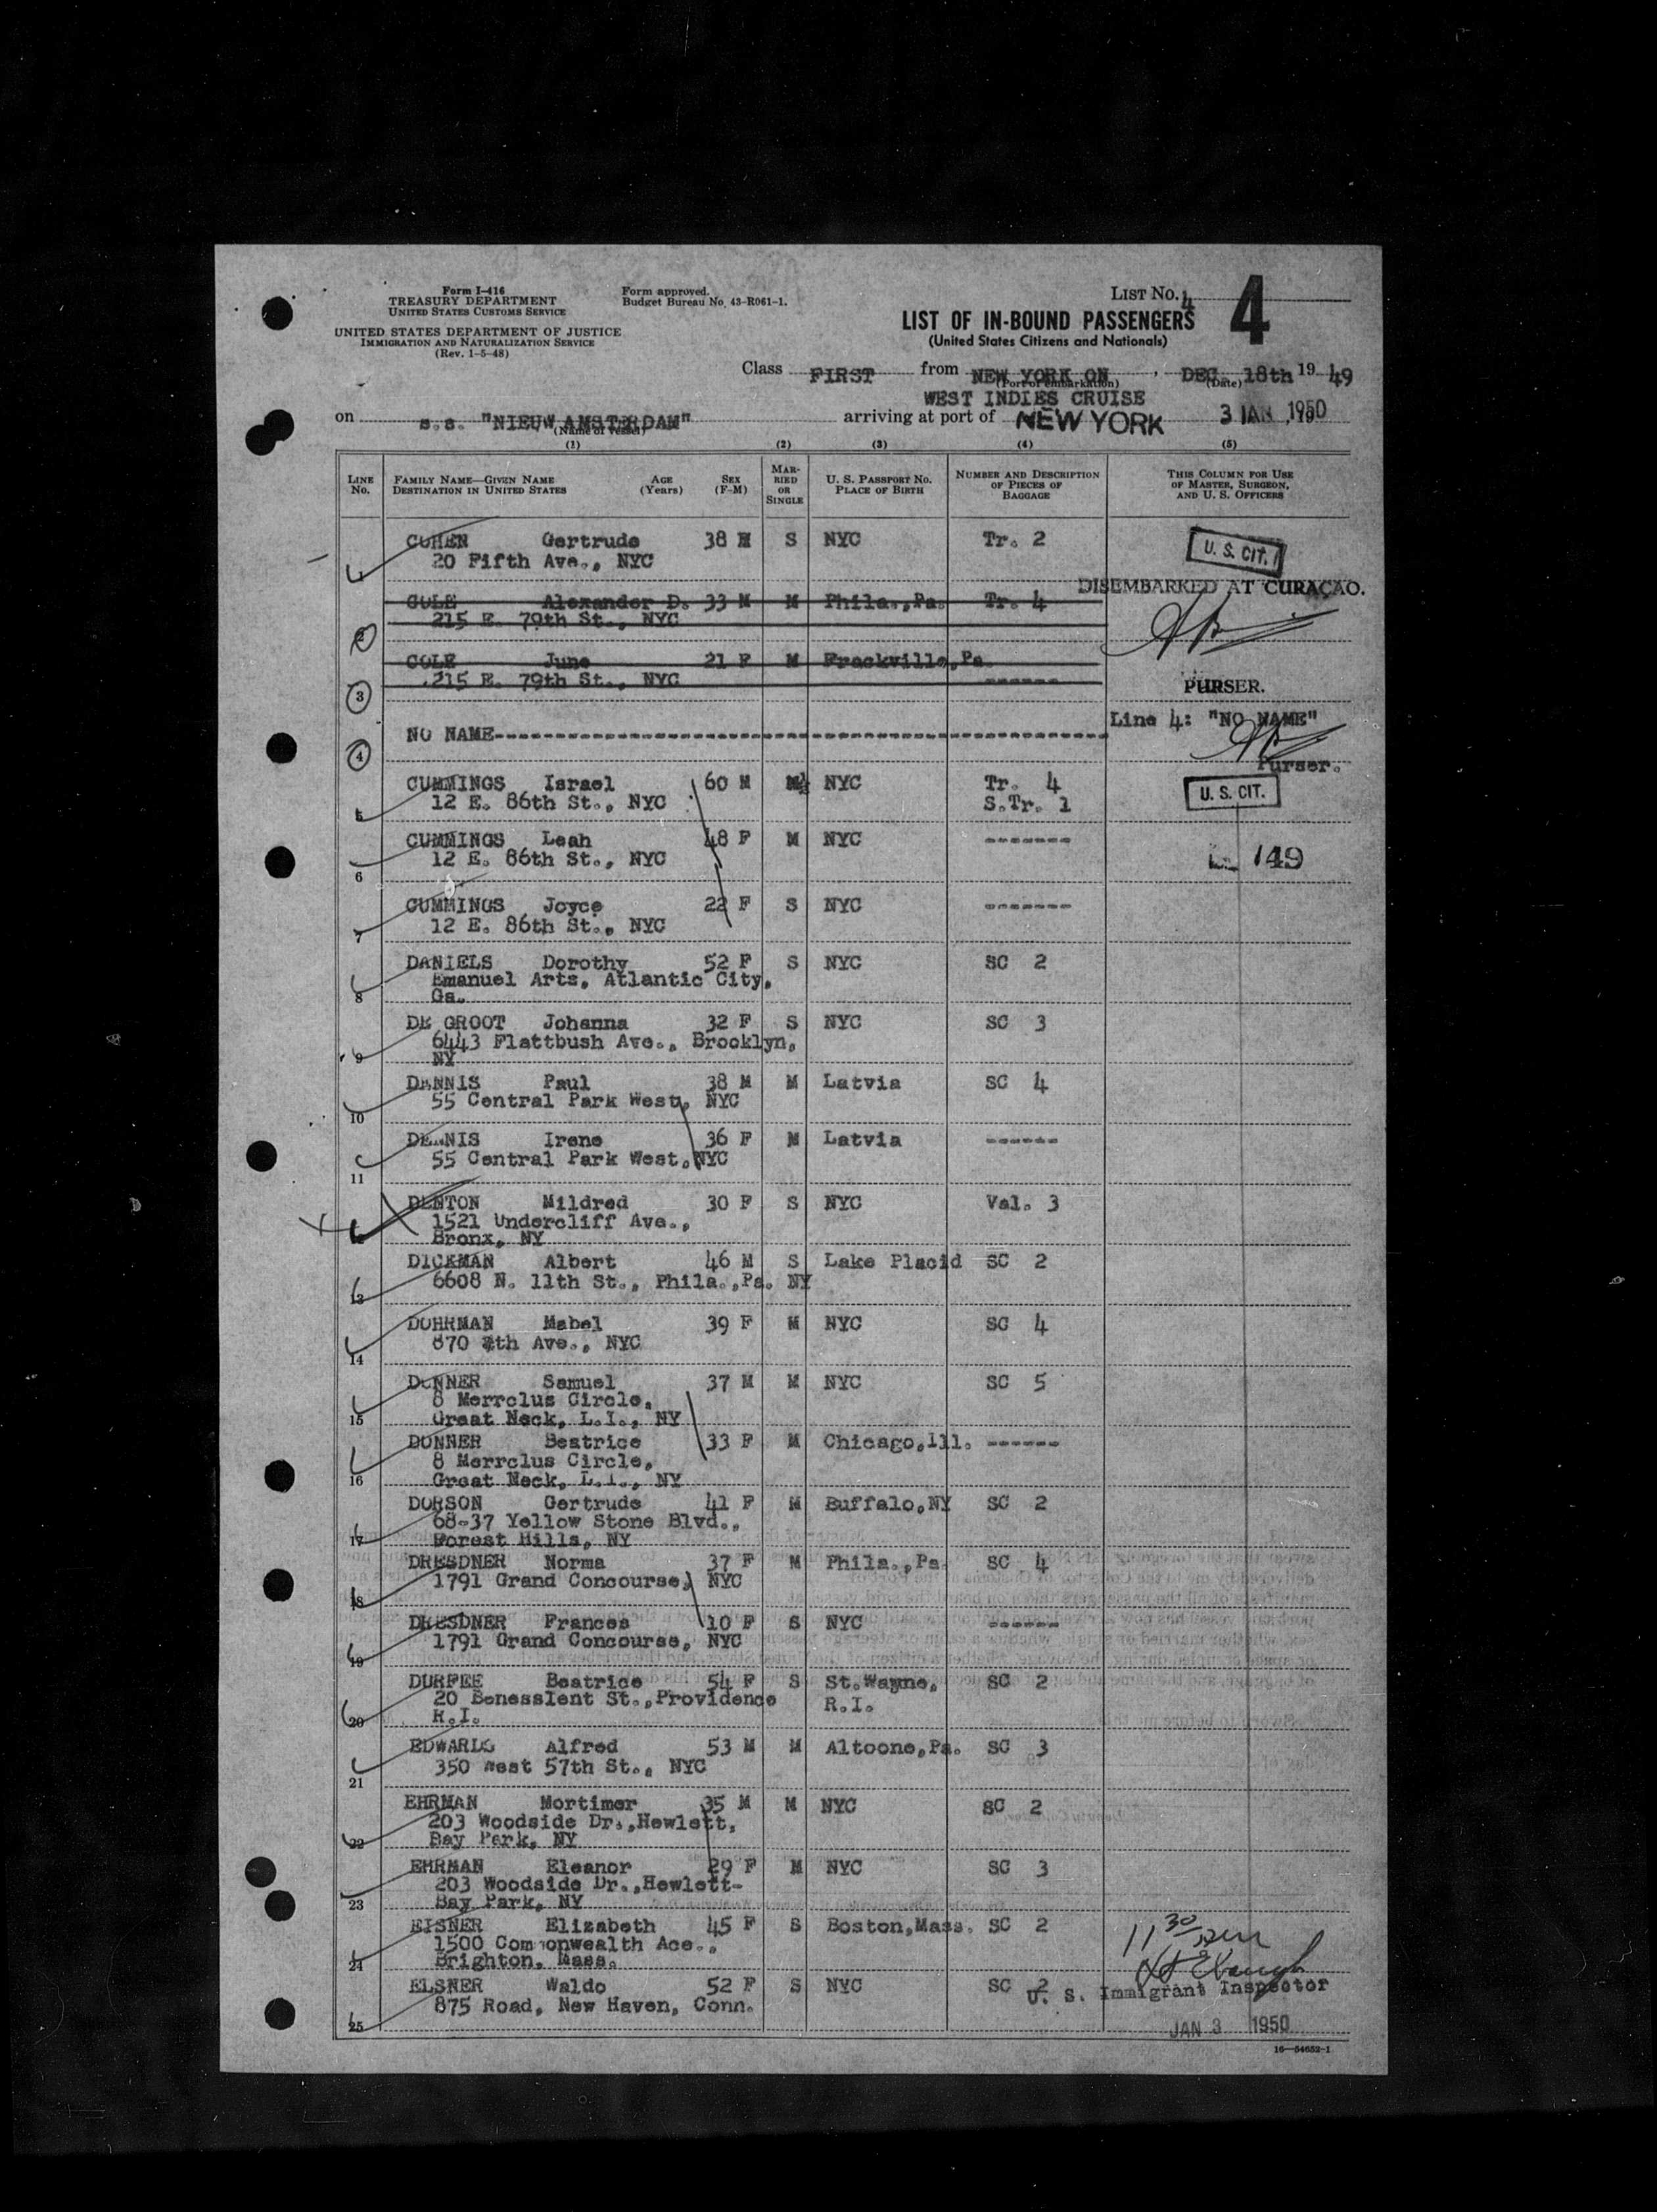 Form I-416
TREASURY DEPARTMENT
UNITED STATES CUSTOMS SERVICE
UNITED STATES DEPARTMENT OF JUSTICE
IMMIGRATION AND NATURALIZATION SERVICE
(Rev. 1-5-48)
Form approved.
Budget Bureau No. 43-R061-1.
LIST NO. 4
4
LIST OF IN-BOUND PASSENGERS
(United States Citizens and Nationals)
Class FIRST from NEW YORK ON, DEC. 18th 19 49
(Port of embarkation) (Date)
WEST INDIES CRUISE
on s.s. "NIEUW AMSTERDAM" arriving at port of NEW YORK 3 JAN, 1950
(Name of vessel)
(1) (2) (3) (4) (5)
LINE No. FAMILY NAME—GIVEN NAME DESTINATION IN UNITED STATES AGE (Years) SEX (F-M) MARRIED OR SINGLE U. S. PASSPORT NO. PLACE OF BIRTH NUMBER AND DESCRIPTION OF PIECES OF BAGGAGE THIS COLUMN FOR USE OF MASTER, SURGEON, AND U. S. OFFICERS
COHEN Gertrude 38 S NYC Tr. 2 U. S. CIT.
20 Fifth Ave., NYC
1
DISEMBARKED AT CURAÇAO.
COLE Alexander D. 33 M M Phila.,Pa. Tr. 4
215 E. 79th St., NYC
2
COLE June 21 F M Frackville,Pa.
215 E. 79th St., NYC ------
3 PURSER.
Line 4: "NO NAME"
NO NAME------------------------------
4 Purser.
CUMMINGS Israel 60 M M NYC Tr. 4 U. S. CIT.
12 E. 86th St., NYC S.Tr. 1
5
CUMMINGS Leah 48 F M NYC -------
12 E. 86th St., NYC 149
6
CUMMINGS Joyce 22 F S NYC -------
12 E. 86th St., NYC
7
DANIELS Dorothy 52 F S NYC SC 2
Emanuel Arts, Atlantic City,
8 Ga.
DE GROOT Johanna 32 F S NYC SC 3
6443 Flattbush Ave., Brooklyn,
9 NY
DENNIS Paul 38 M M Latvia SC 4
55 Central Park West, NYC
10
DENNIS Irene 36 F M Latvia ------
55 Central Park West, NYC
11
DENTON Mildred 30 F S NYC Val. 3
1521 Undercliff Ave.,
12 Bronx, NY
DICKMAN Albert 46 M S Lake Placid SC 2
6608 N. 11th St., Phila.,Pa. NY
13
DOHRMAN Mabel 39 F M NYC SC 4
870 7th Ave., NYC
14
DONNER Samuel 37 M M NYC SC 5
8 Merrclus Circle,
15 Great Neck, L.I., NY
DONNER Beatrice 33 F M Chicago,Ill. ------
8 Merrclus Circle,
16 Great Neck, L.I., NY
DORSON Gertrude 41 F M Buffalo,NY SC 2
68-37 Yellow Stone Blvd.,
17 Forest Hills, NY
DRESDNER Norma 37 F M Phila.,Pa. SC 4
1791 Grand Concourse, NYC
18
DRESDNER Frances 10 F S NYC ------
1791 Grand Concourse, NYC
19
DURFEE Beatrice 54 F S St.Wayne, SC 2
20 Benesslent St.,Providence R.I.
20 R.I.
EDWARDS Alfred 53 M M Altoone,Pa. SC 3
350 West 57th St., NYC
21
EHRMAN Mortimer 35 M M NYC SC 2
203 Woodside Dr.,Hewlett,
22 Bay Park, NY
EHRMAN Eleanor 29 F M NYC SC 3
203 Woodside Dr.,Hewlett-
23 Bay Park, NY
EISNER Elizabeth 45 F S Boston,Mass. SC 2
1500 Commonwealth Ace.,
24 Brighton, Mass.
11 30
ELSNER Waldo 52 F S NYC SC 2
U. S. Immigrant Inspector
875 Road, New Haven, Conn.
25
JAN 3 1950
16—54652-1